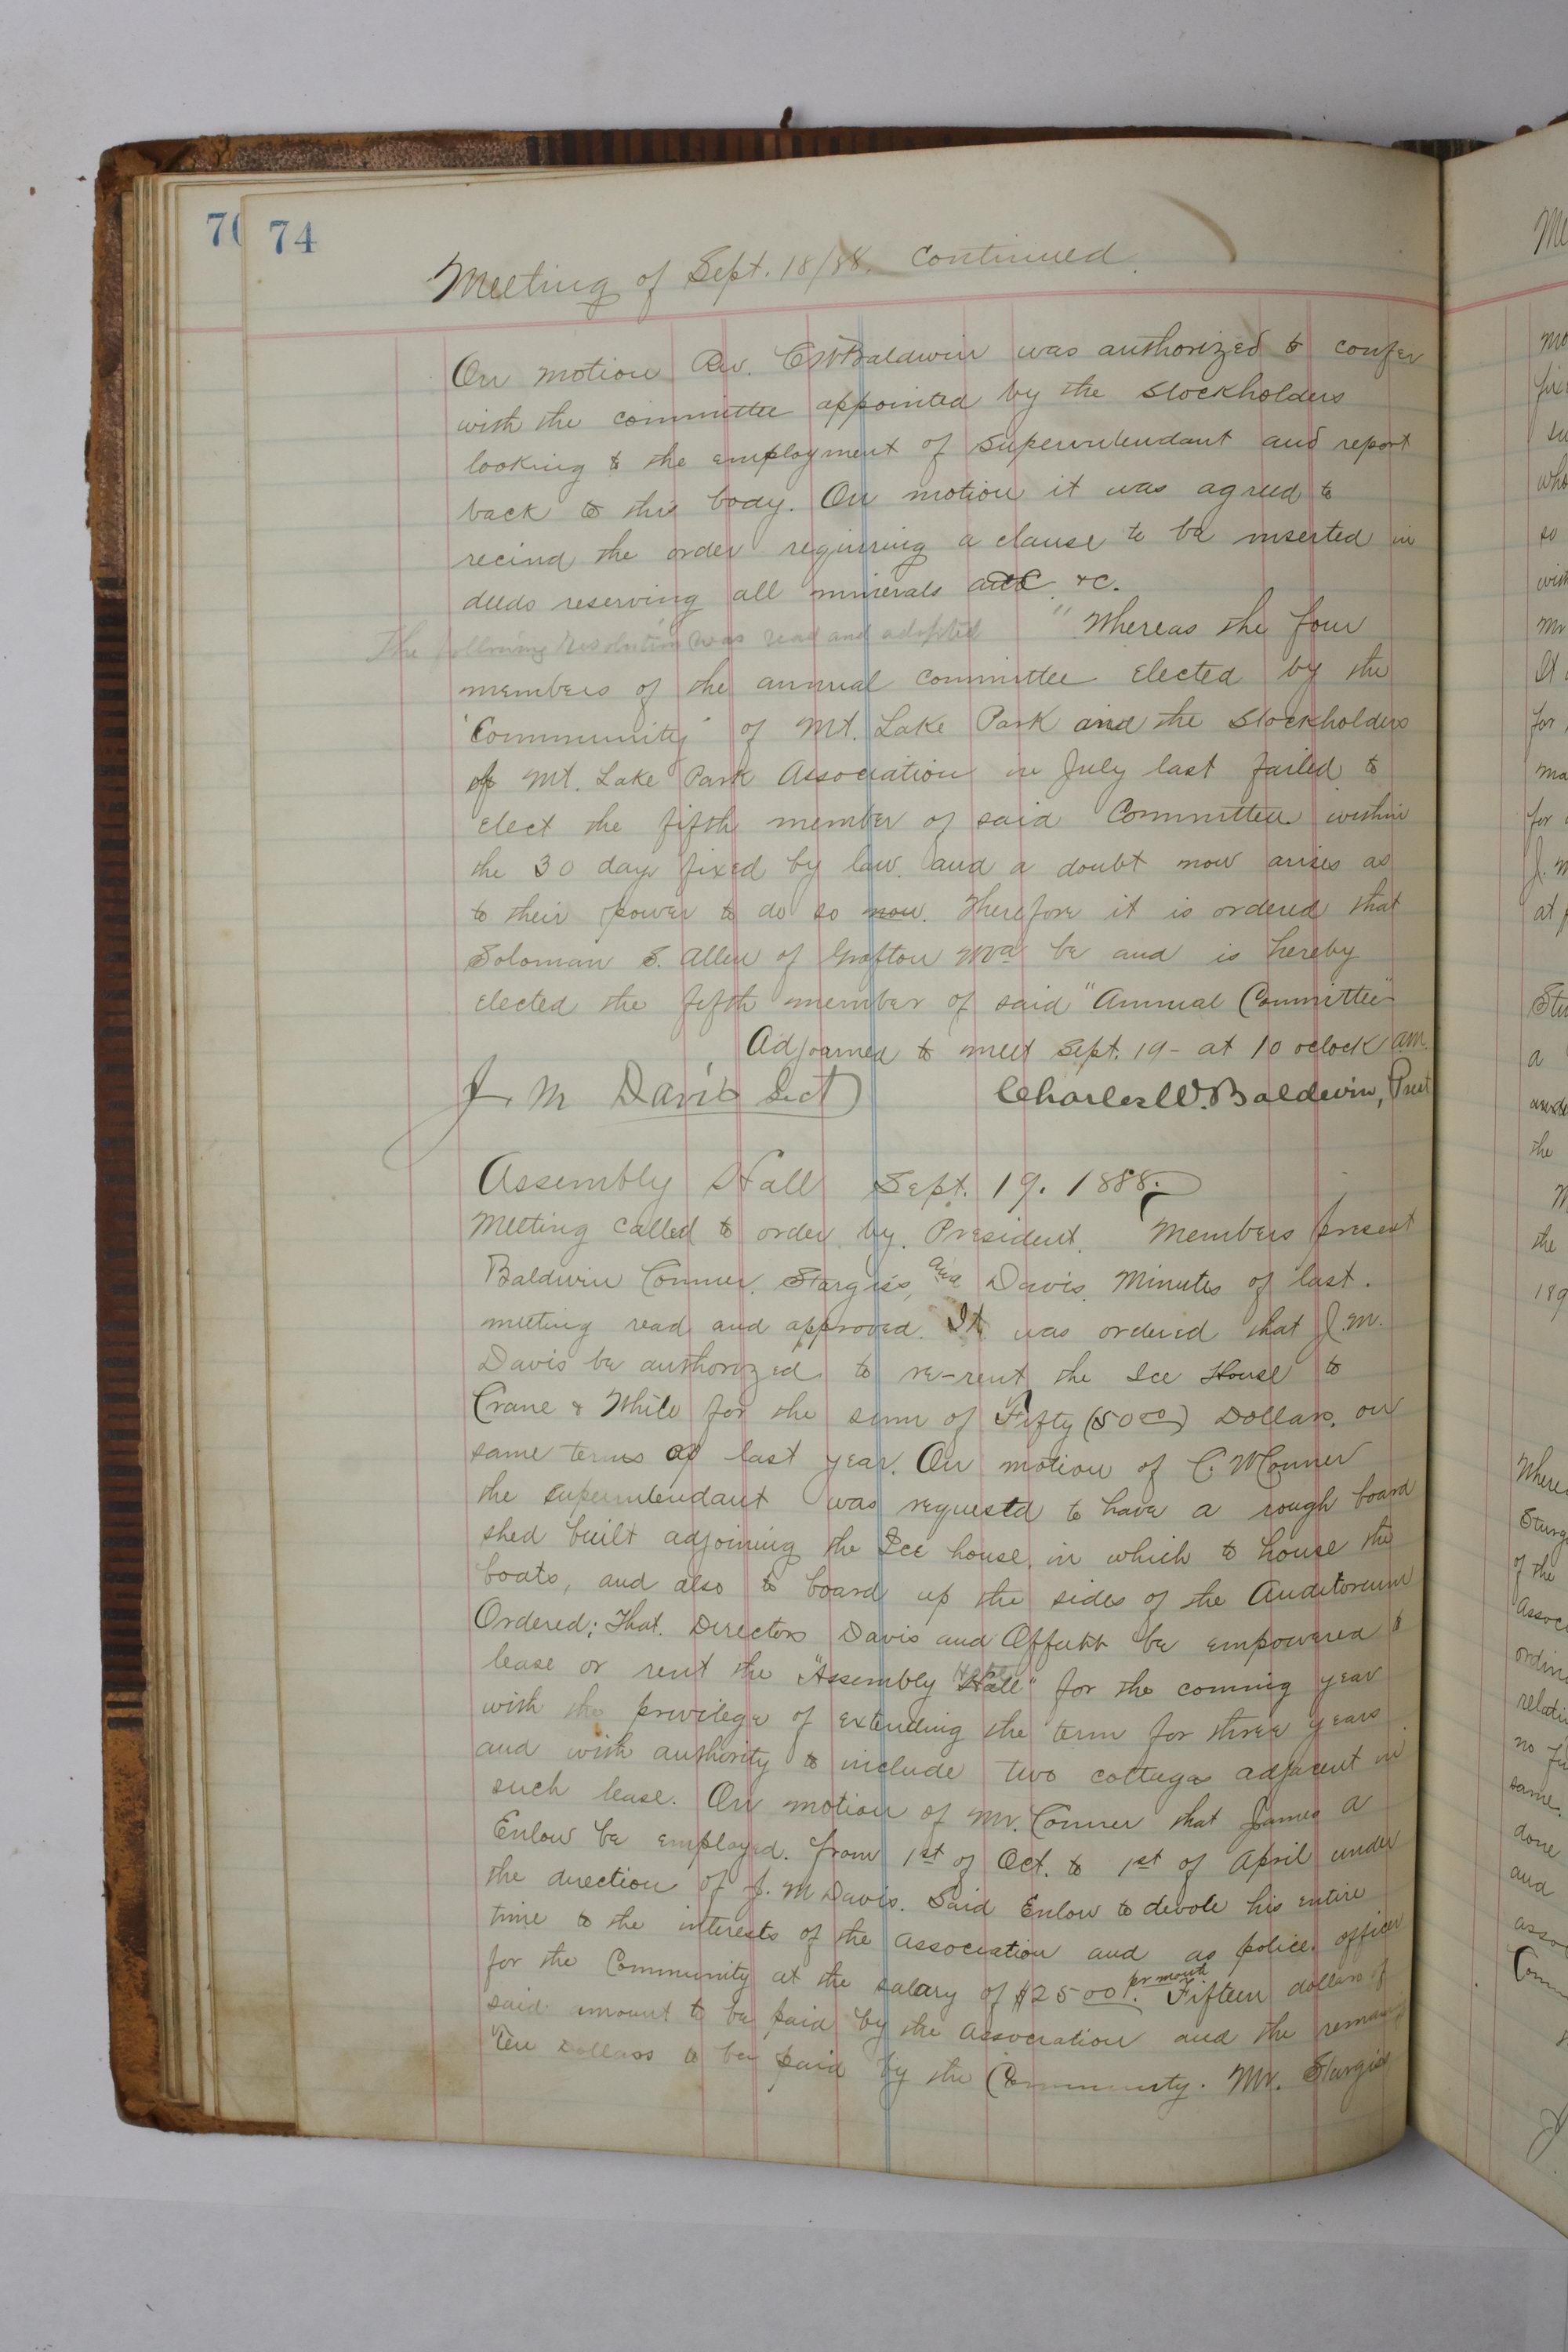 74
Meeting of Sept. 18/88. Continued.
On motion Rev. C W Baldwin was authorized to confer
with the committee appointed by the Stockholders
looking to the employment of Superintendant and report
back to this body. On motion it was agreed to
recind the order requiring a clause to be inserted in
deeds reserving all minerals &c.
The following resolution was read and adopted "Whereas the four
members of the annual Committee elected by the
"Community" of Mt. Lake Park and the Stockholders
of Mt. Lake Park Association in July last failed to
elect the fifth member of said Committee within
the 30 days fixed by law. and a doubt now arises as
to their power to do so now. Therefore it is ordered that
Soloman S. Allen of Grafton W Va be and is hereby
elected the fifth member of said "Annual Committee"
Adjourned to meet Sept. 19 - at 10 oclock am.
J. M Davis Sect Charles W. Baldwin, Prest
Assembly Hall Sept. 19. 1888.
Meeting called to order by. President. Members present
Baldwin Conner. Sturgiss, and Davis. Minutes of last.
meeting read and approved. It was ordered that J. M.
Davis be authorized to re-rent the Ice House to
Crane & White for the sum of Fifty (50 00) Dollars. on
same terms as last year. On motion of C. W Conner
the superintendant was requestd to have a rough board
shed built adjoining the Ice house. in which to house the
boats, and also to board up the sides of the Auditorium
Ordered; That. Directors Davis and Offutt be empowered to
lease or rent the "Assembly Hall" for the coming year
with the privilege of extending the term for three years
and with authority to include two cottages adjacent in
such lease. On motion of Mr. Conner that James A
Enlow be employed. from 1st of Oct. to 1st of April under
the direction of J. M Davis. Said Enlow to devote his entire
time to the interests of the association and as police officer
for the Community at the salary of $25 00 pr month. Fifteen dollars of
said amount to be paid by the association and the remaining
Ten Dollars to be paid by the Community. Mr. Sturgiss